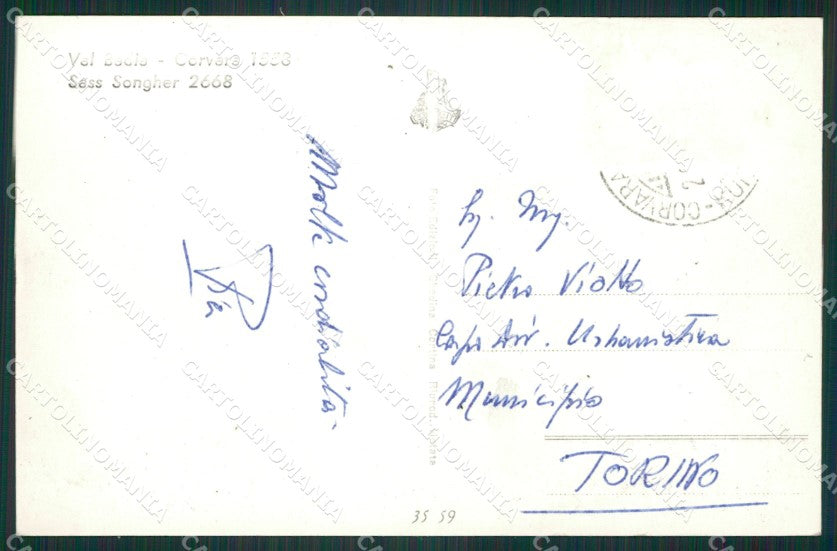 Val Badia - Corvara 1558
Sass Songher 2668
Molte cordialità
Eg. Ing.
Pietro Viotto
Capo Div. Urbanistica
Municipio
TORINO
CORVARA
35 59
CARTOLINOMANIA